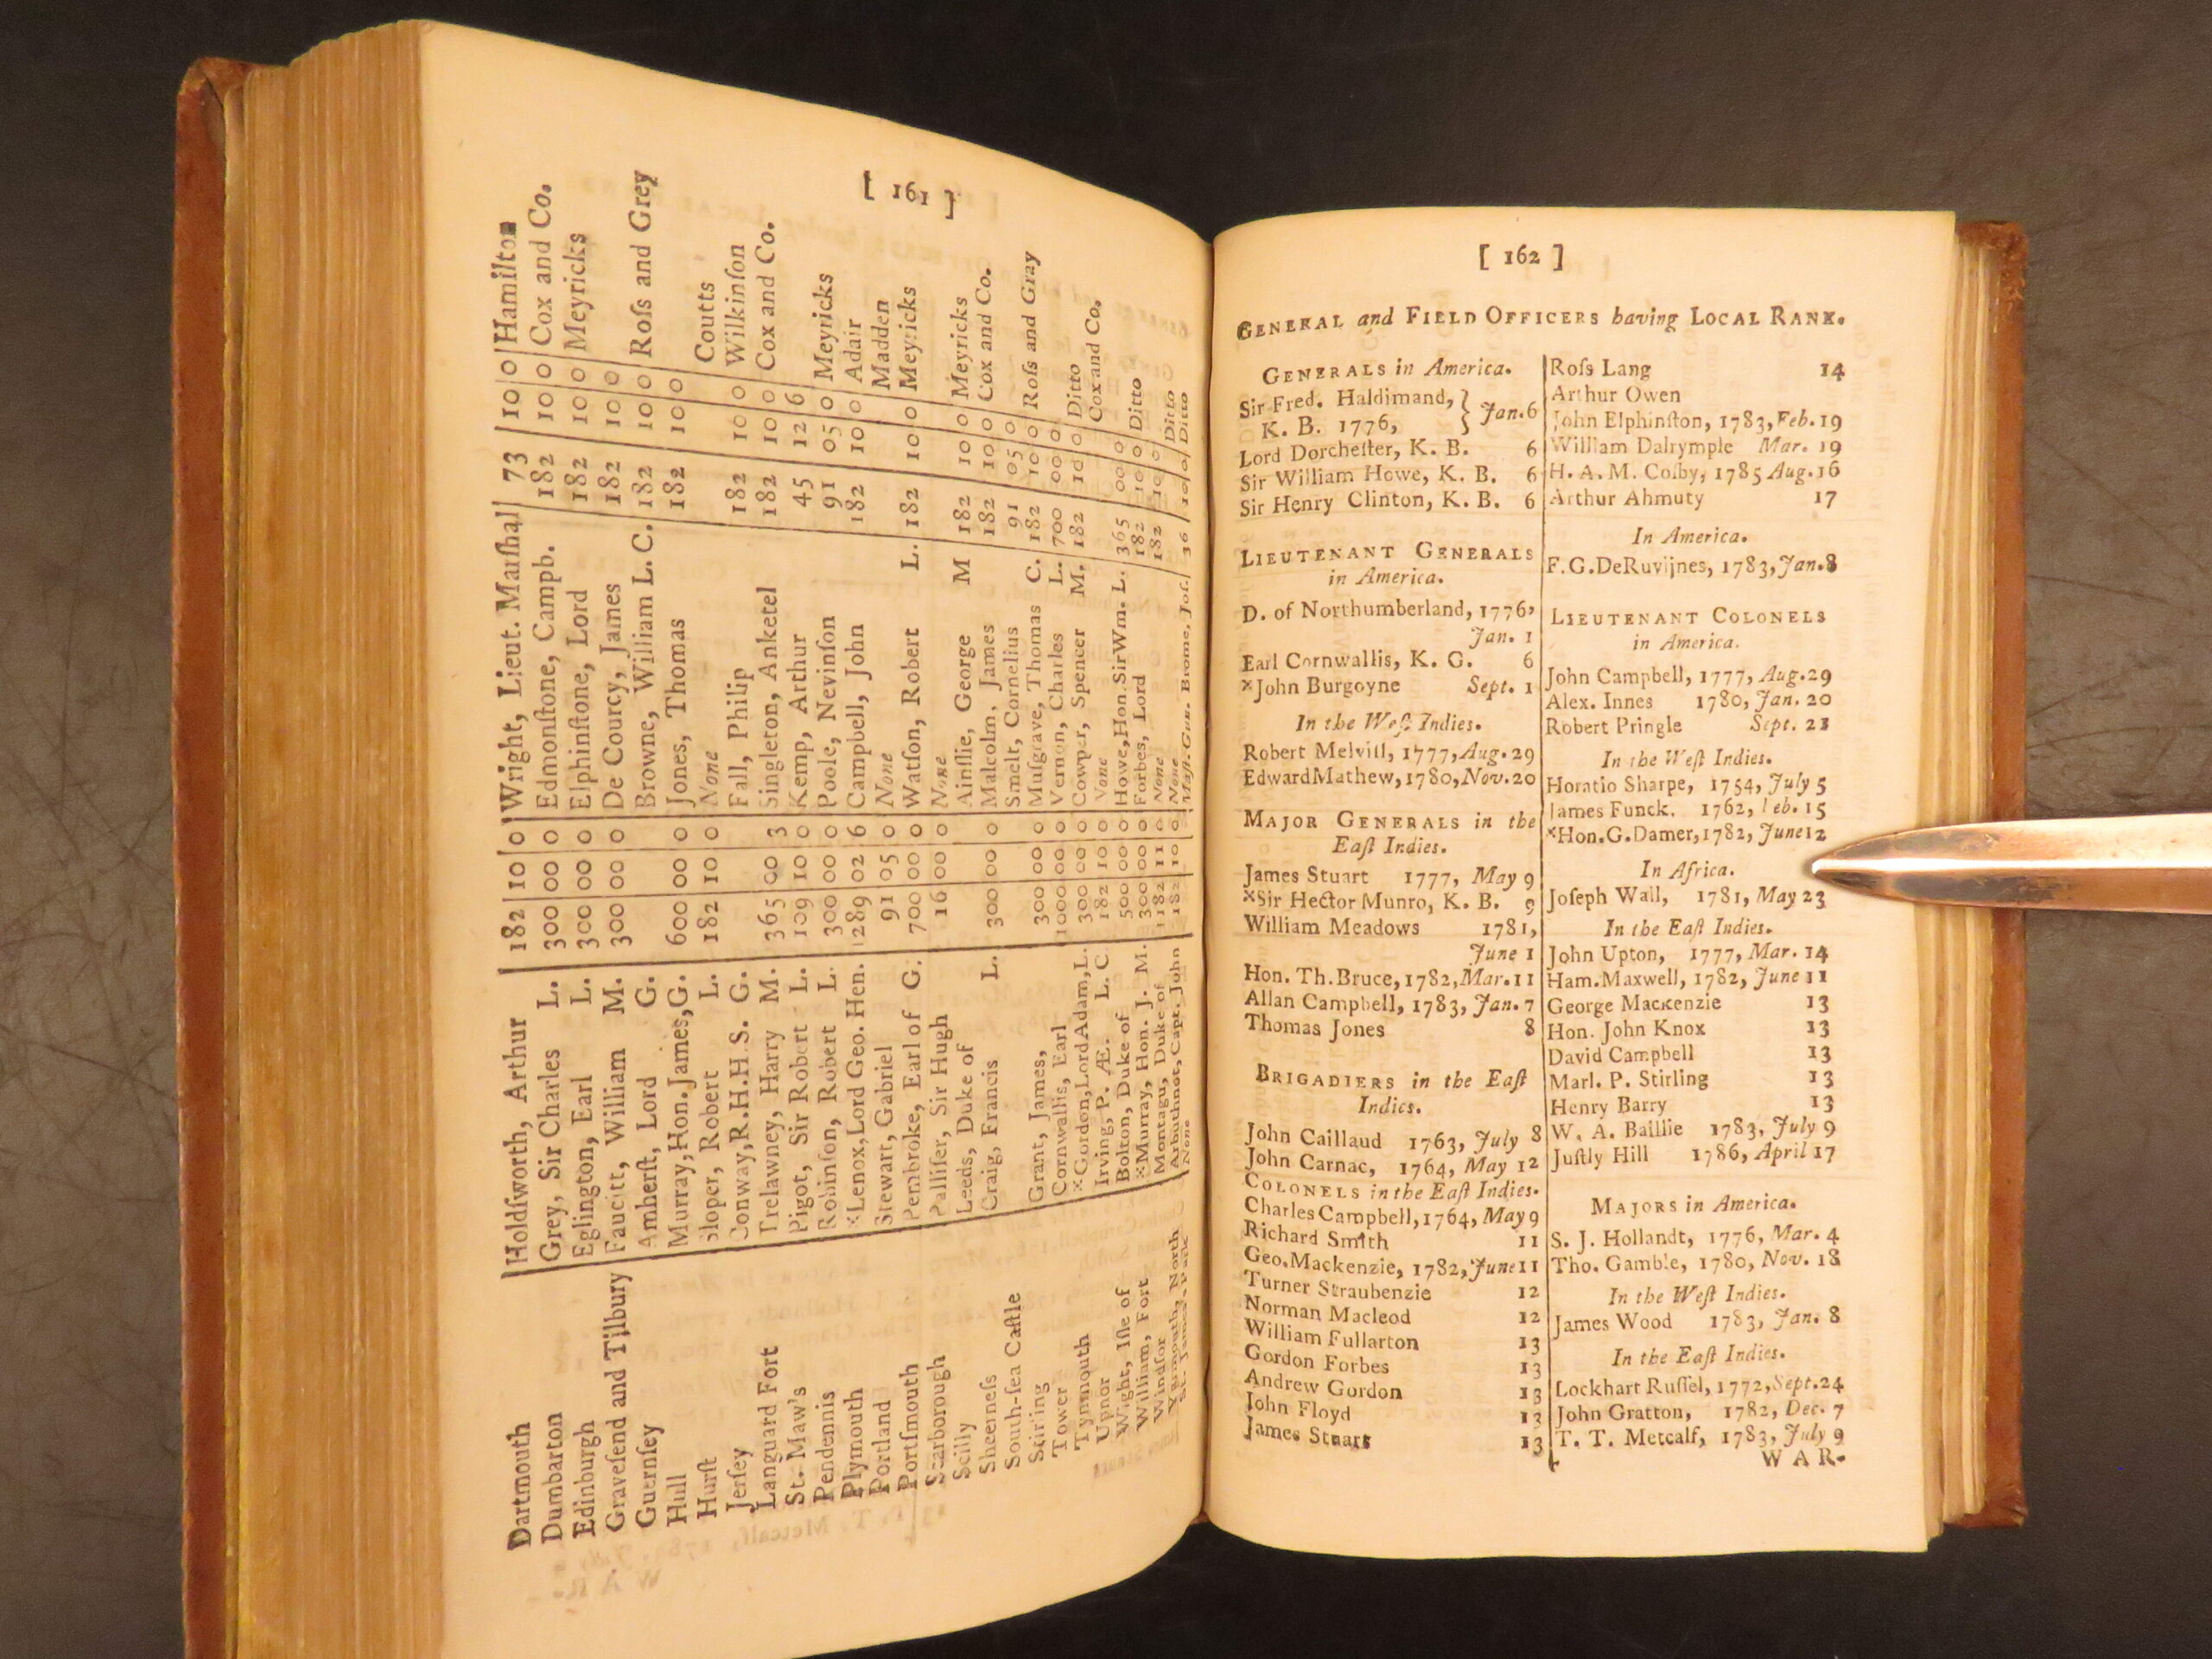 [ 161 ]
Dartmouth Holdſworth, Arthur 182 10 0 Wright, Lieut. Marſhal 73 10 0 Hamilton
Dumbarton Grey, Sir Charles L. 300 00 0 Edmonſtone, Campb. 182 10 0 Cox and Co.
Edinburgh Eglington, Earl L. 300 00 0 Elphinſtone, Lord 182 10 0 Meyricks
Graveſend and Tilbury Faucitt, William M. 300 00 0 De Courcy, James 182 10 0
Guernſey Amherſt, Lord G. Browne, William L. C. 182 10 0 Roſs and Grey
Hull Murray, Hon. James, G. 600 00 0 Jones, Thomas 182 10 0
Hurſt Sloper, Robert L. 182 10 0 None Coutts
Jerſey Conway, R. H. H. S. G. Fall, Philip 182 10 0 Wilkinſon
Languard Fort Trelawney, Harry M. 365 00 3 Singleton, Anketel 182 10 0 Cox and Co.
St. Maw's Pigot, Sir Robert L. 109 10 0 Kemp, Arthur 45 12 6
Pendennis Robinſon, Robert L. 300 00 0 Poole, Nevinſon 91 05 0 Meyricks
Plymouth *Lenox, Lord Geo. Hen. 1289 02 6 Campbell, John 182 10 0 Adair
Portland Stewart, Gabriel 91 05 0 None Madden
Portſmouth Pembroke, Earl of G. 700 00 0 Watſon, Robert L. 182 10 0 Meyricks
Scarborough Palliſer, Sir Hugh 16 00 0 None
Scilly Leeds, Duke of Ainſlie, George M 182 10 0 Meyricks
Sheerneſs Craig, Francis L. 300 00 0 Malcolm, James 182 10 0 Cox and Co.
South-ſea Caſtle Smelt, Cornelius 91 05 0
Stirling Grant, James, 300 00 0 Muſgrave, Thomas C. 182 10 0 Roſs and Gray
Tower Cornwallis, Earl 1000 00 0 Vernon, Charles L. 700 00 0
Tynmouth *Gordon, Lord Adam, L. 300 00 0 Cowper, Spencer M. 182 10 0 Ditto
Upnor Irving, P. Æ. L. C. 182 10 0 None Cox and Co.
Wight, Iſle of Bolton, Duke of 500 00 0 Howe, Hon. Sir Wm. L. 365 00 0
William, Fort *Murray, Hon. J. M. 300 00 0 Forbes, Lord 182 10 0 Ditto
Windſor Montagu, Duke of 1182 11 0 None 182 10 0
Yarmouth, North Arbuthnot, Capt. John 182 10 0 None Ditto
St. James's Park None Maſt. Gun. Brome, Joſ. 36 10 0 Ditto
[ 162 ]
GENERAL and FIELD OFFICERS having LOCAL RANK.
GENERALS in America.
Sir Fred. Haldimand, } Jan. 6
K. B. 1776,
Lord Dorcheſter, K. B. 6
Sir William Howe, K. B. 6
Sir Henry Clinton, K. B. 6
LIEUTENANT GENERALS
in America.
D. of Northumberland, 1776,
Jan. 1
Earl Cornwallis, K. G. 6
*John Burgoyne Sept. 1
In the Weſt Indies.
Robert Melvill, 1777, Aug. 29
Edward Mathew, 1780, Nov. 20
MAJOR GENERALS in the
Eaſt Indies.
James Stuart 1777, May 9
*Sir Hector Munro, K. B. 9
William Meadows 1781,
June 1
Hon. Th. Bruce, 1782, Mar. 11
Allan Campbell, 1783, Jan. 7
Thomas Jones 8
BRIGADIERS in the Eaſt
Indies.
John Caillaud 1763, July 8
John Carnac, 1764, May 12
COLONELS in the Eaſt Indies.
Charles Campbell, 1764, May 9
Richard Smith 11
Geo. Mackenzie, 1782, June 11
Turner Straubenzie 12
Norman Macleod 12
William Fullarton 13
Gordon Forbes 13
Andrew Gordon 13
John Floyd 13
James Stuart 13
Roſs Lang 14
Arthur Owen
John Elphinſton, 1783, Feb. 19
William Dalrymple Mar. 19
H. A. M. Coſby, 1785 Aug. 16
Arthur Ahmuty 17
In America.
F. G. De Ruvijnes, 1783, Jan. 8
LIEUTENANT COLONELS
in America.
John Campbell, 1777, Aug. 29
Alex. Innes 1780, Jan. 20
Robert Pringle Sept. 21
In the Weſt Indies.
Horatio Sharpe, 1754, July 5
James Funck. 1762, Feb. 15
*Hon. G. Damer, 1782, June 12
In Africa.
Joſeph Wall, 1781, May 23
In the Eaſt Indies.
John Upton, 1777, Mar. 14
Ham. Maxwell, 1782, June 11
George Mackenzie 13
Hon. John Knox 13
David Campbell 13
Marl. P. Stirling 13
Henry Barry 13
W. A. Baillie 1783, July 9
Juſtly Hill 1786, April 17
MAJORS in America.
S. J. Hollandt, 1776, Mar. 4
Tho. Gamble, 1780, Nov. 18
In the Weſt Indies.
James Wood 1783, Jan. 8
In the Eaſt Indies.
Lockhart Ruſſel, 1772, Sept. 24
John Gratton, 1782, Dec. 7
T. T. Metcalf, 1783, July 9
WAR-